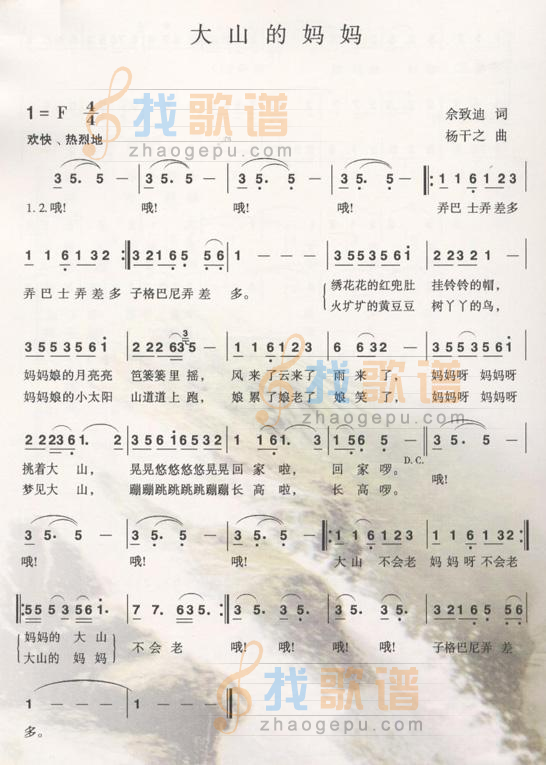 大山的妈妈
1= F 4/4
欢快、热烈地
佘致迪 词
杨干之 曲
找歌谱
zhaogepu.com
3 5· 5 — | 3 5· 5 — | 3 5· 5 — | 3 5· 5 — |: 1 1 6 1 2 3
1.2.哦! 哦! 哦! 哦! 弄巴士弄差多
1 1 6 1 3 2 :| 3 2 1 6 5 5 5 6 | 1 — — | 3 5 5 3 5 6 1 | 2 2 3 2 1 — |
弄巴士弄差多 子格巴尼弄差 多。 绣花花的红兜肚 挂铃铃的帽,
火圹圹的黄豆豆 树丫丫的鸟,
3 5 5 3 5 5 6 1 | 2 2 2 6 3 5 — | 1 1 6 1 1 2 3 | 6 6 3 2 — | 3 5 5 3 5 6 1
妈妈娘的月亮亮 笆篓篓里摇, 风来了云来了 雨来了, 妈妈呀 妈妈呀
妈妈娘的小太阳 山道道上跑, 娘累了娘老了 娘笑了, 妈妈呀 妈妈呀
找歌谱
zhaogepu.com
2 2 2 3 6 1· 2 | 3 5 6 1 6 5 3 2 | 1 1 6 1· 3 | 1 5 6 5 — | 3 5· 5 — |
D.C.
挑着大山, 晃晃悠悠悠悠晃晃 回家啦, 回家啰。 哦!
梦见大山, 蹦蹦跳跳跳跳蹦蹦 长高啦, 长高啰。
3 5· 5 — | 3 5· 5 — | 3 5· 5 — |: 1 1 6 1 2 3 | 1 1 6 1 3 2 :|
哦! 哦! 哦! 大山 不会老 妈妈呀不会老
|: 5 5 5 3 5 6 1· | 7 7· 6 3 5· :| 3 5· 5 | 3 5· 5 | 3 2 1 6 5 5 6 |
妈妈的 大山 不会老 哦! 哦! 哦! 哦! 子格巴尼弄差
大山的 妈妈
找歌谱
zhaogepu.com
1 — — — | 1 — — — ‖
多。